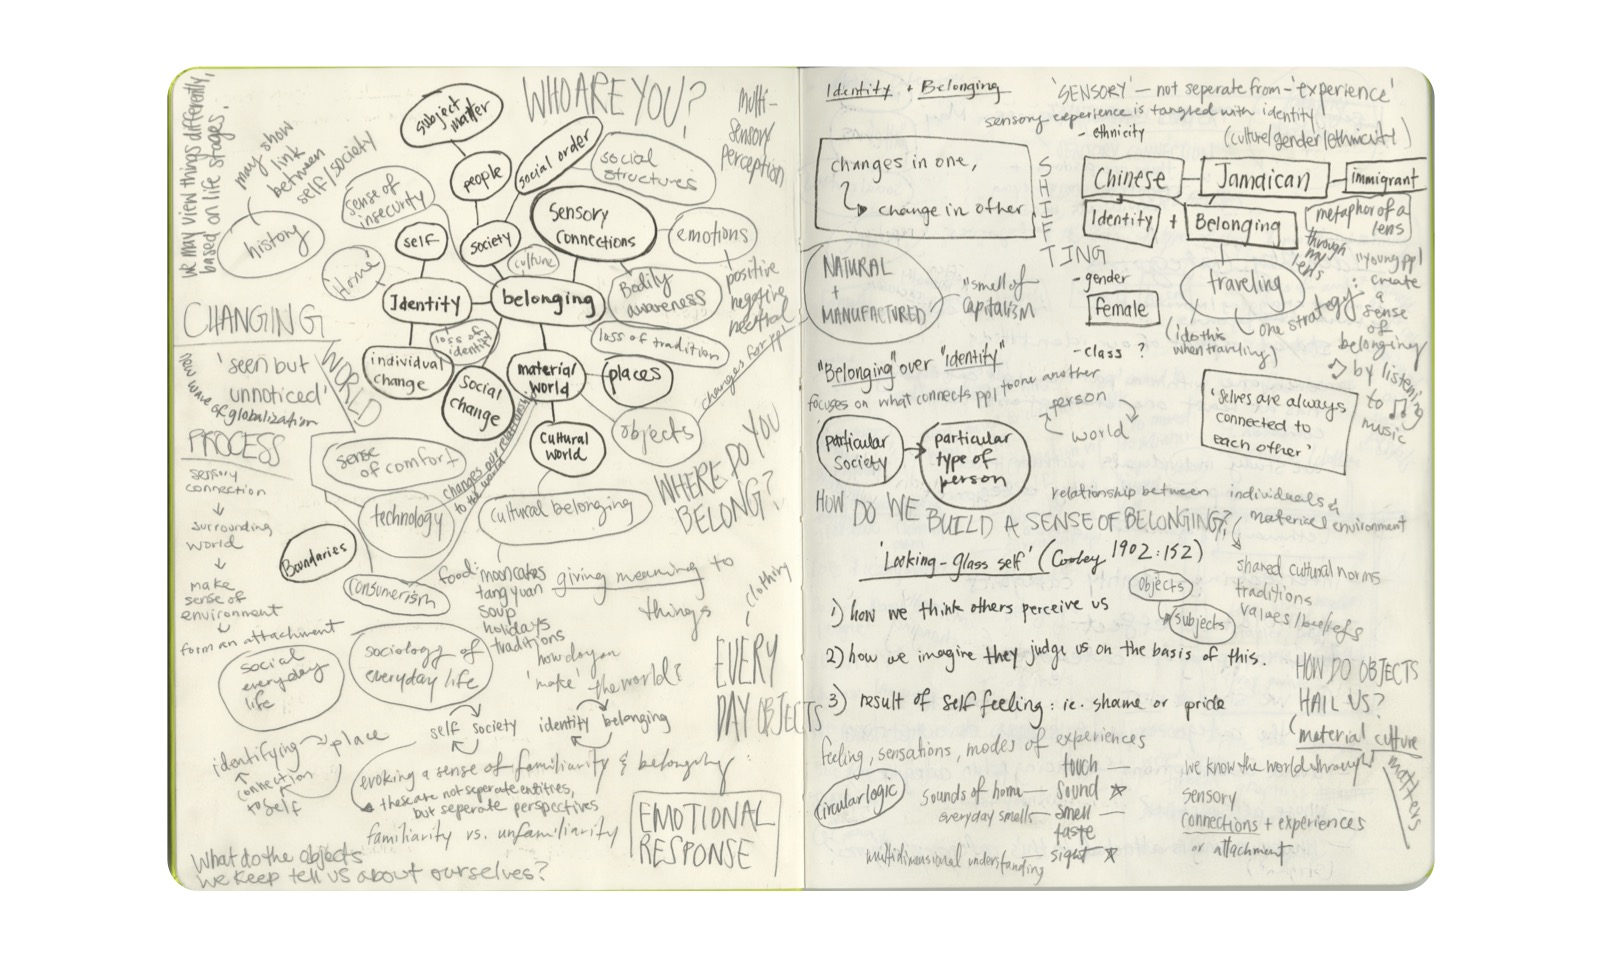 we may view things differently,
based on life stages.
may show
link
between
self/society
history
sense of
insecurity
'Home'
subject
matter
people
self
society
social order
social
structures
WHO ARE YOU?
multi-
sensory
perception
sensory
connections
culture
emotions
positive
negative
neutral
Identity
belonging
Bodily
awareness
loss of
identity
loss of tradition
changes for ppl
individual
change
social
change
material
world
places
objects
cultural
world
CHANGING
WORLD
'seen but
unnoticed'
new wave of globalization
PROCESS
sensory
connection
surrounding
world
make
sense of
environment
form an attachment
sense
of comfort
technology
changes our relationship
to the world
Boundaries
consumerism
cultural belonging
WHERE DO YOU
BELONG?
food: mooncakes
tangyuan
soup
holidays
traditions
giving meaning to
things
clothing
how do you
'make' the world?
social
everyday
life
sociology of
everyday life
EVERY
DAY OBJECTS
self society
identity belonging
identifying
place
connection
to self
evoking a sense of familiarity & belonging.
these are not seperate entities,
but seperate perspectives
familiarity vs. unfamiliarity
EMOTIONAL
RESPONSE
What do the objects
we keep tell us about ourselves?
Identity + Belonging
'SENSORY' — not seperate from - 'experience'
sensory experience is tangled with identity
(culture/gender/ethnicity)
- ethnicity
changes in one,
change in other
SHIF
TING
Chinese
Jamaican
immigrant
Identity + Belonging
metaphor of a
lens
through
my
lens
NATURAL
+
MANUFACTURED
"smell of
capitalism
- gender
Female
traveling
(i do this
when traveling)
one strategy:
"young ppl
create
a
sense
of
belonging
by listening
to
music
- class ?
"Belonging" over "identity"
focuses on what connects ppl to one another
person
world
'selves are always
connected to
each other'
particular
society
particular
type of
person
relationship between individuals &
material environment
HOW DO WE BUILD A SENSE OF BELONGING?
'Looking-glass self' (Cooley 1902:152)
shared cultural norms
traditions
values/beliefs
objects
subjects
1) how we think others perceive us
2) how we imagine they judge us on the basis of this.
3) result of self feeling: ie. shame or pride
HOW DO OBJECTS
HAIL US?
(material culture
matters
feeling, sensations, modes of experiences
circular logic
touch —
sounds of home — sound
everyday smells — smell —
taste
multidimensional understanding — sight
we know the world through
sensory
connections + experiences
or attachment